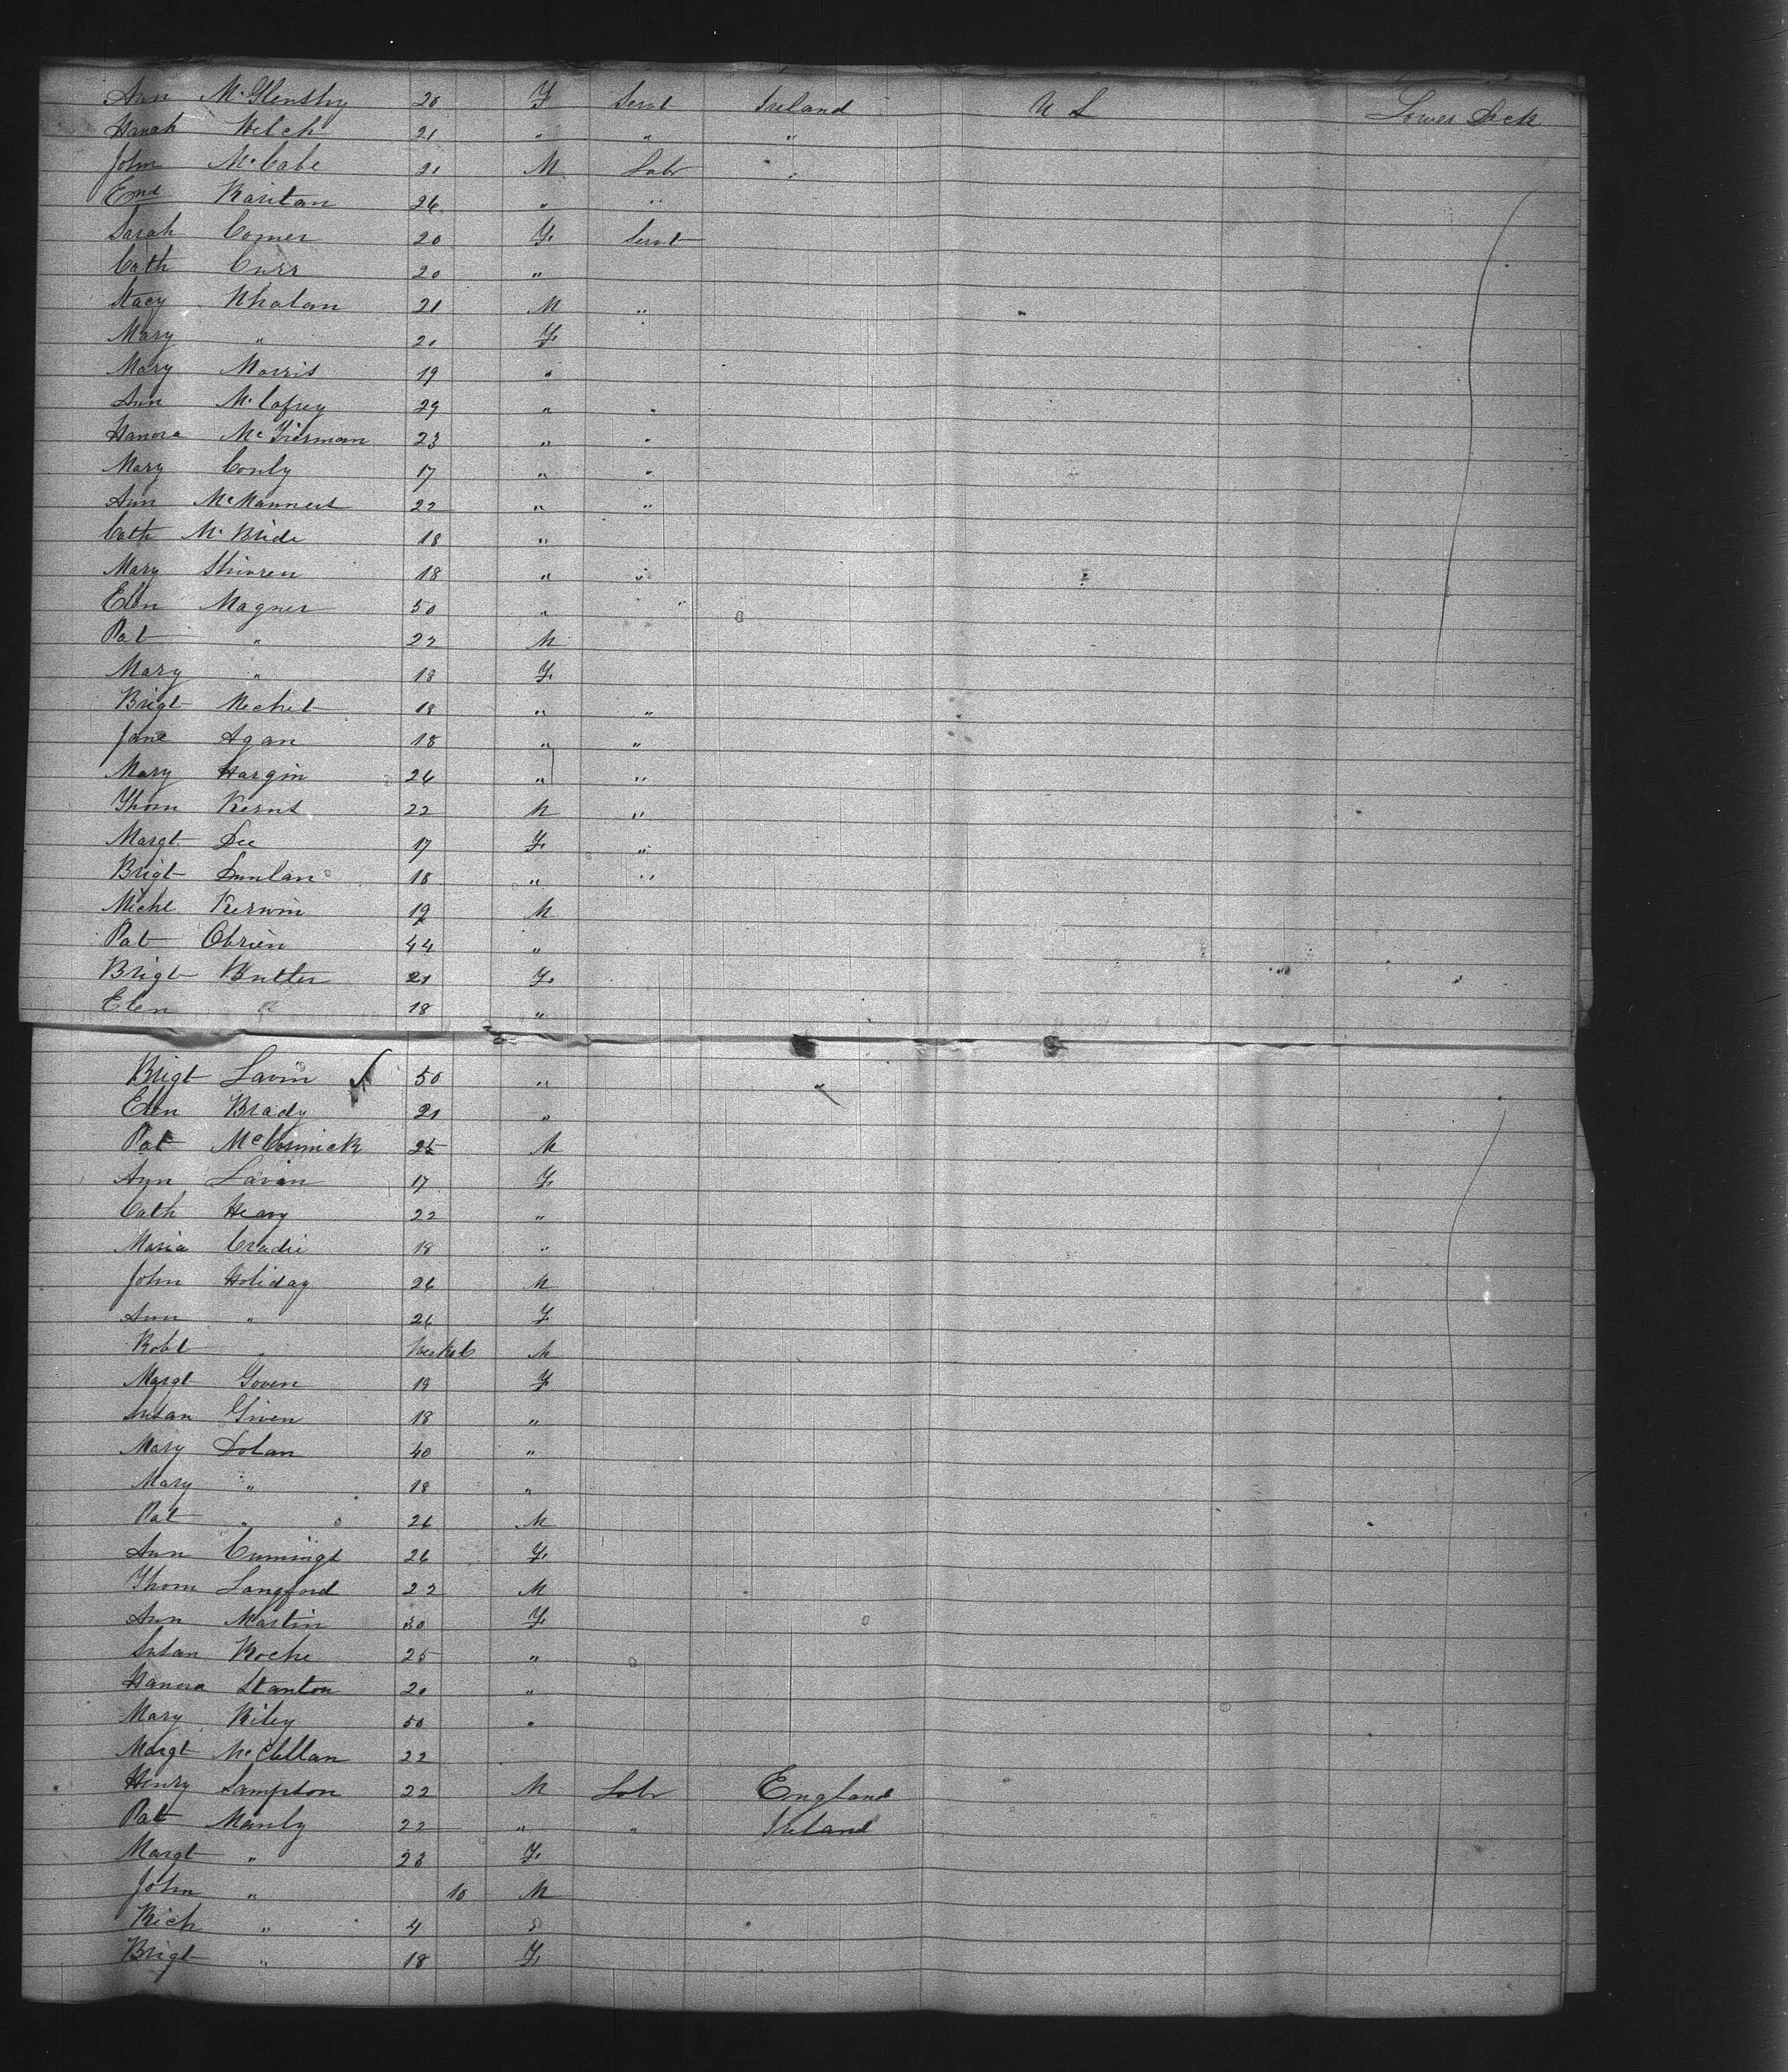 Ann Mc Glenshy 20 F Servt Ireland U S Lower Deck
Hanah Welch 21 " " "
John McCabe 21 M Labr "
Emd Karitan 26 " "
Sarah Comer 20 F Servt
Cath Curr 20 "
Stacy Whalan 21 M "
Mary " 20 F
Mary Morris 19 "
Ann McCafrey 29 " "
Hanora McTierman 23 " "
Mary Conly 17 " "
Ann McManneet 22 " "
Cath McBride 18 "
Mary 18 " "
Elen Magner 50 " "
Pat " 22 M
Mary " 18 F
Brigt Mechet 18 " "
Jane Agan 18 " "
Mary Hargin 26 " "
Thom Kerns 22 M "
Margt Dee 17 F "
Brigt Dunlan 18 " "
Michl Kerwin 19 M
Pat Obrien 44 "
Brigt Butler 21 F
Elen " 18 "
Brigt Lavin 50 " "
Elen Brady 21 "
Pat McCormick 25 M
Ann Lavin 17 F
Cath Heary 22 "
Maria Cradie 18 "
John Holiday 26 M
Ann " 26 F
Robt " M
Margt Goven 19 F
Susan Given 18 "
Mary Dolan 40 "
Mary " 18 "
Pat " 26 M
Ann Cumings 26 F
Thom Langford 22 M
Ann Martin 30 F
Susan Roche 25 "
Hanora Stanton 20 "
Mary Riley 50 "
Margt McClellan 22
Henry Sampton 22 M Labr England
Pat Manly 22 " " Ireland
Margt " 23 F
John " 10 M
Rich " 4 "
Brigt " 18 F